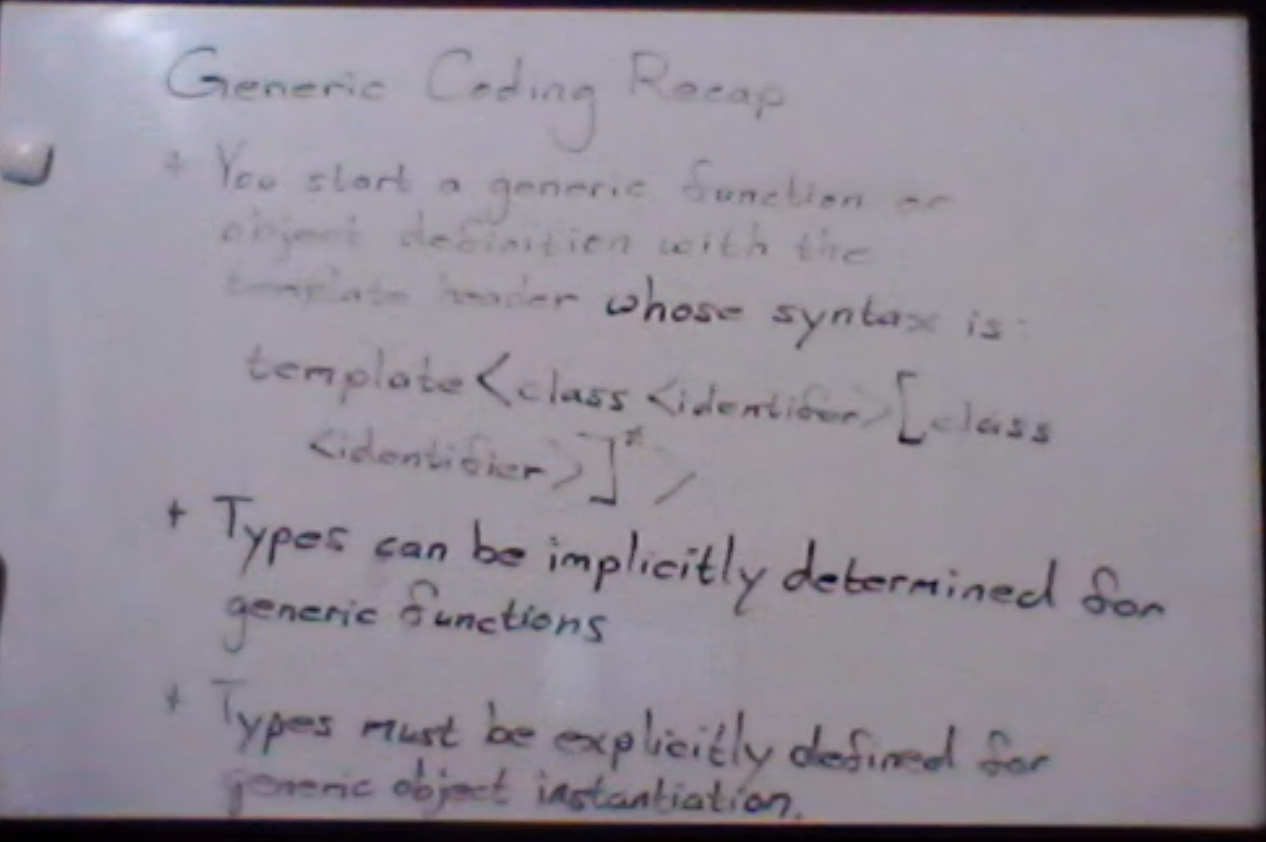 Generic Coding Recap
+ You start a generic function or
object definition with the
template header whose syntax is:
template<class <identifier>[class
<identifier>]*>
+ Types can be implicitly determined for
generic functions
+ Types must be explicitly defined for
generic object instantiation.